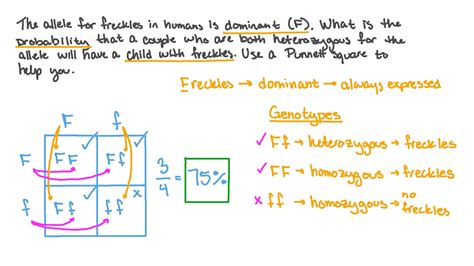 The allele for freckles in humans is dominant (F). What is the
probability that a couple who are both heterozygous for the
allele will have a child with freckles. Use a Punnett Square to
help you.
Freckles → dominant → always expressed
Genotypes
F f
✓ Ff → heterozygous → freckles
F FF ✓ Ff ✓
3/4 = 75%
✓ FF → homozygous → freckles
f Ff ✓ ff x
x ff → homozygous → no freckles